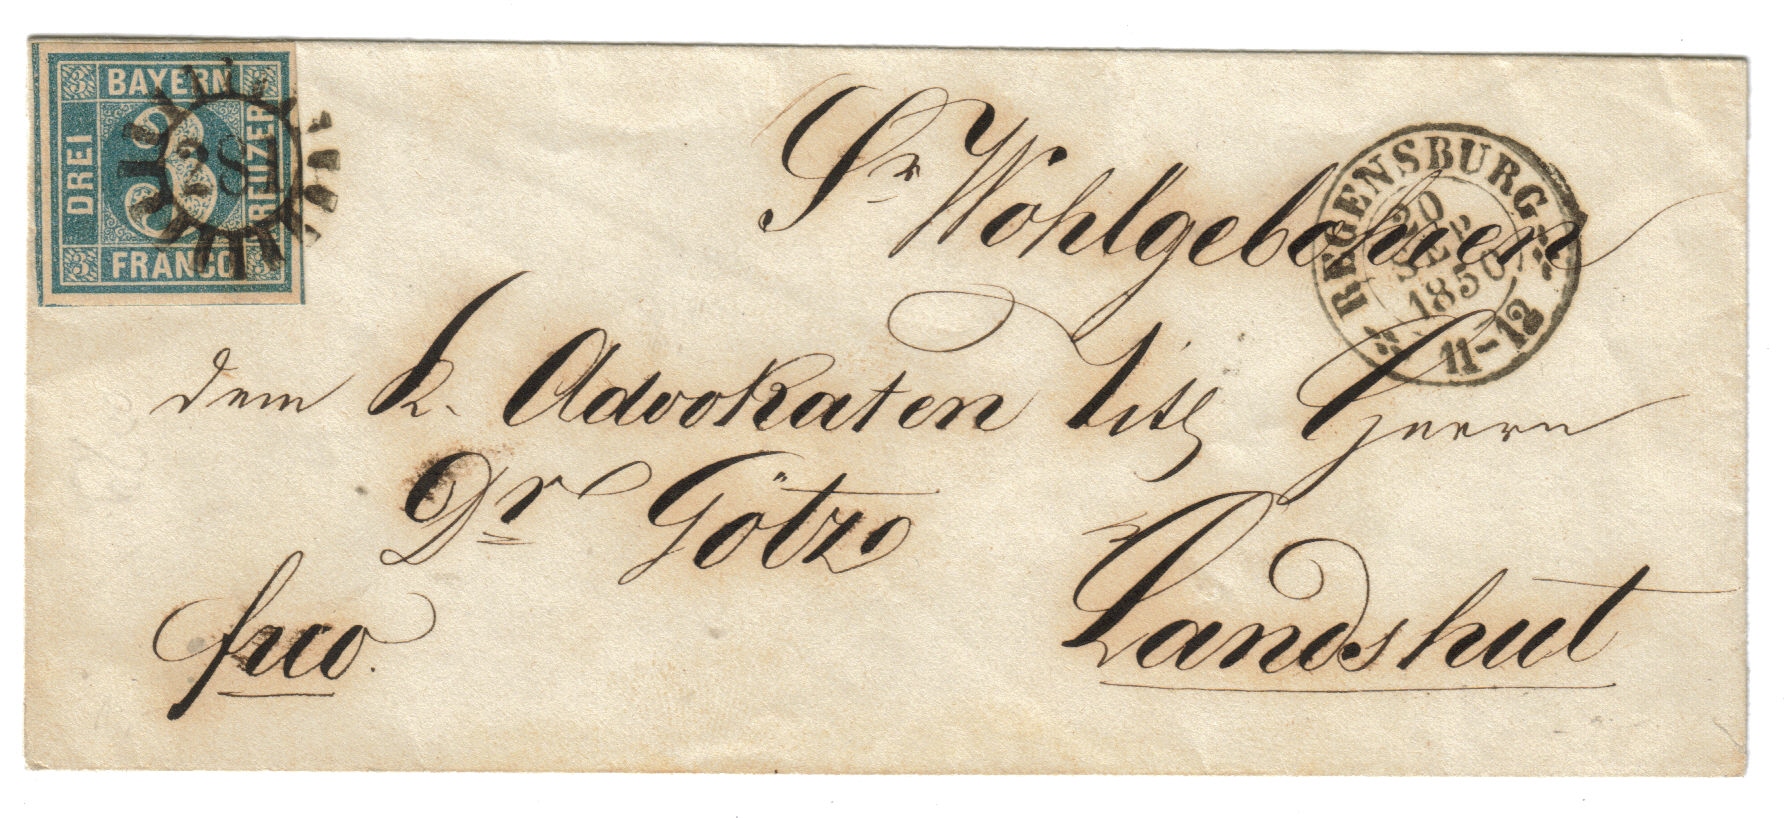 BAYERN
DREI
KREUZER
FRANCO
3
3
3
3
REGENSBURG
20
SEP
1850
11-12
Sr. Wohlgebohren
dem k. Advokaten Titl Herrn
Dr Götz
frco.
Landshut